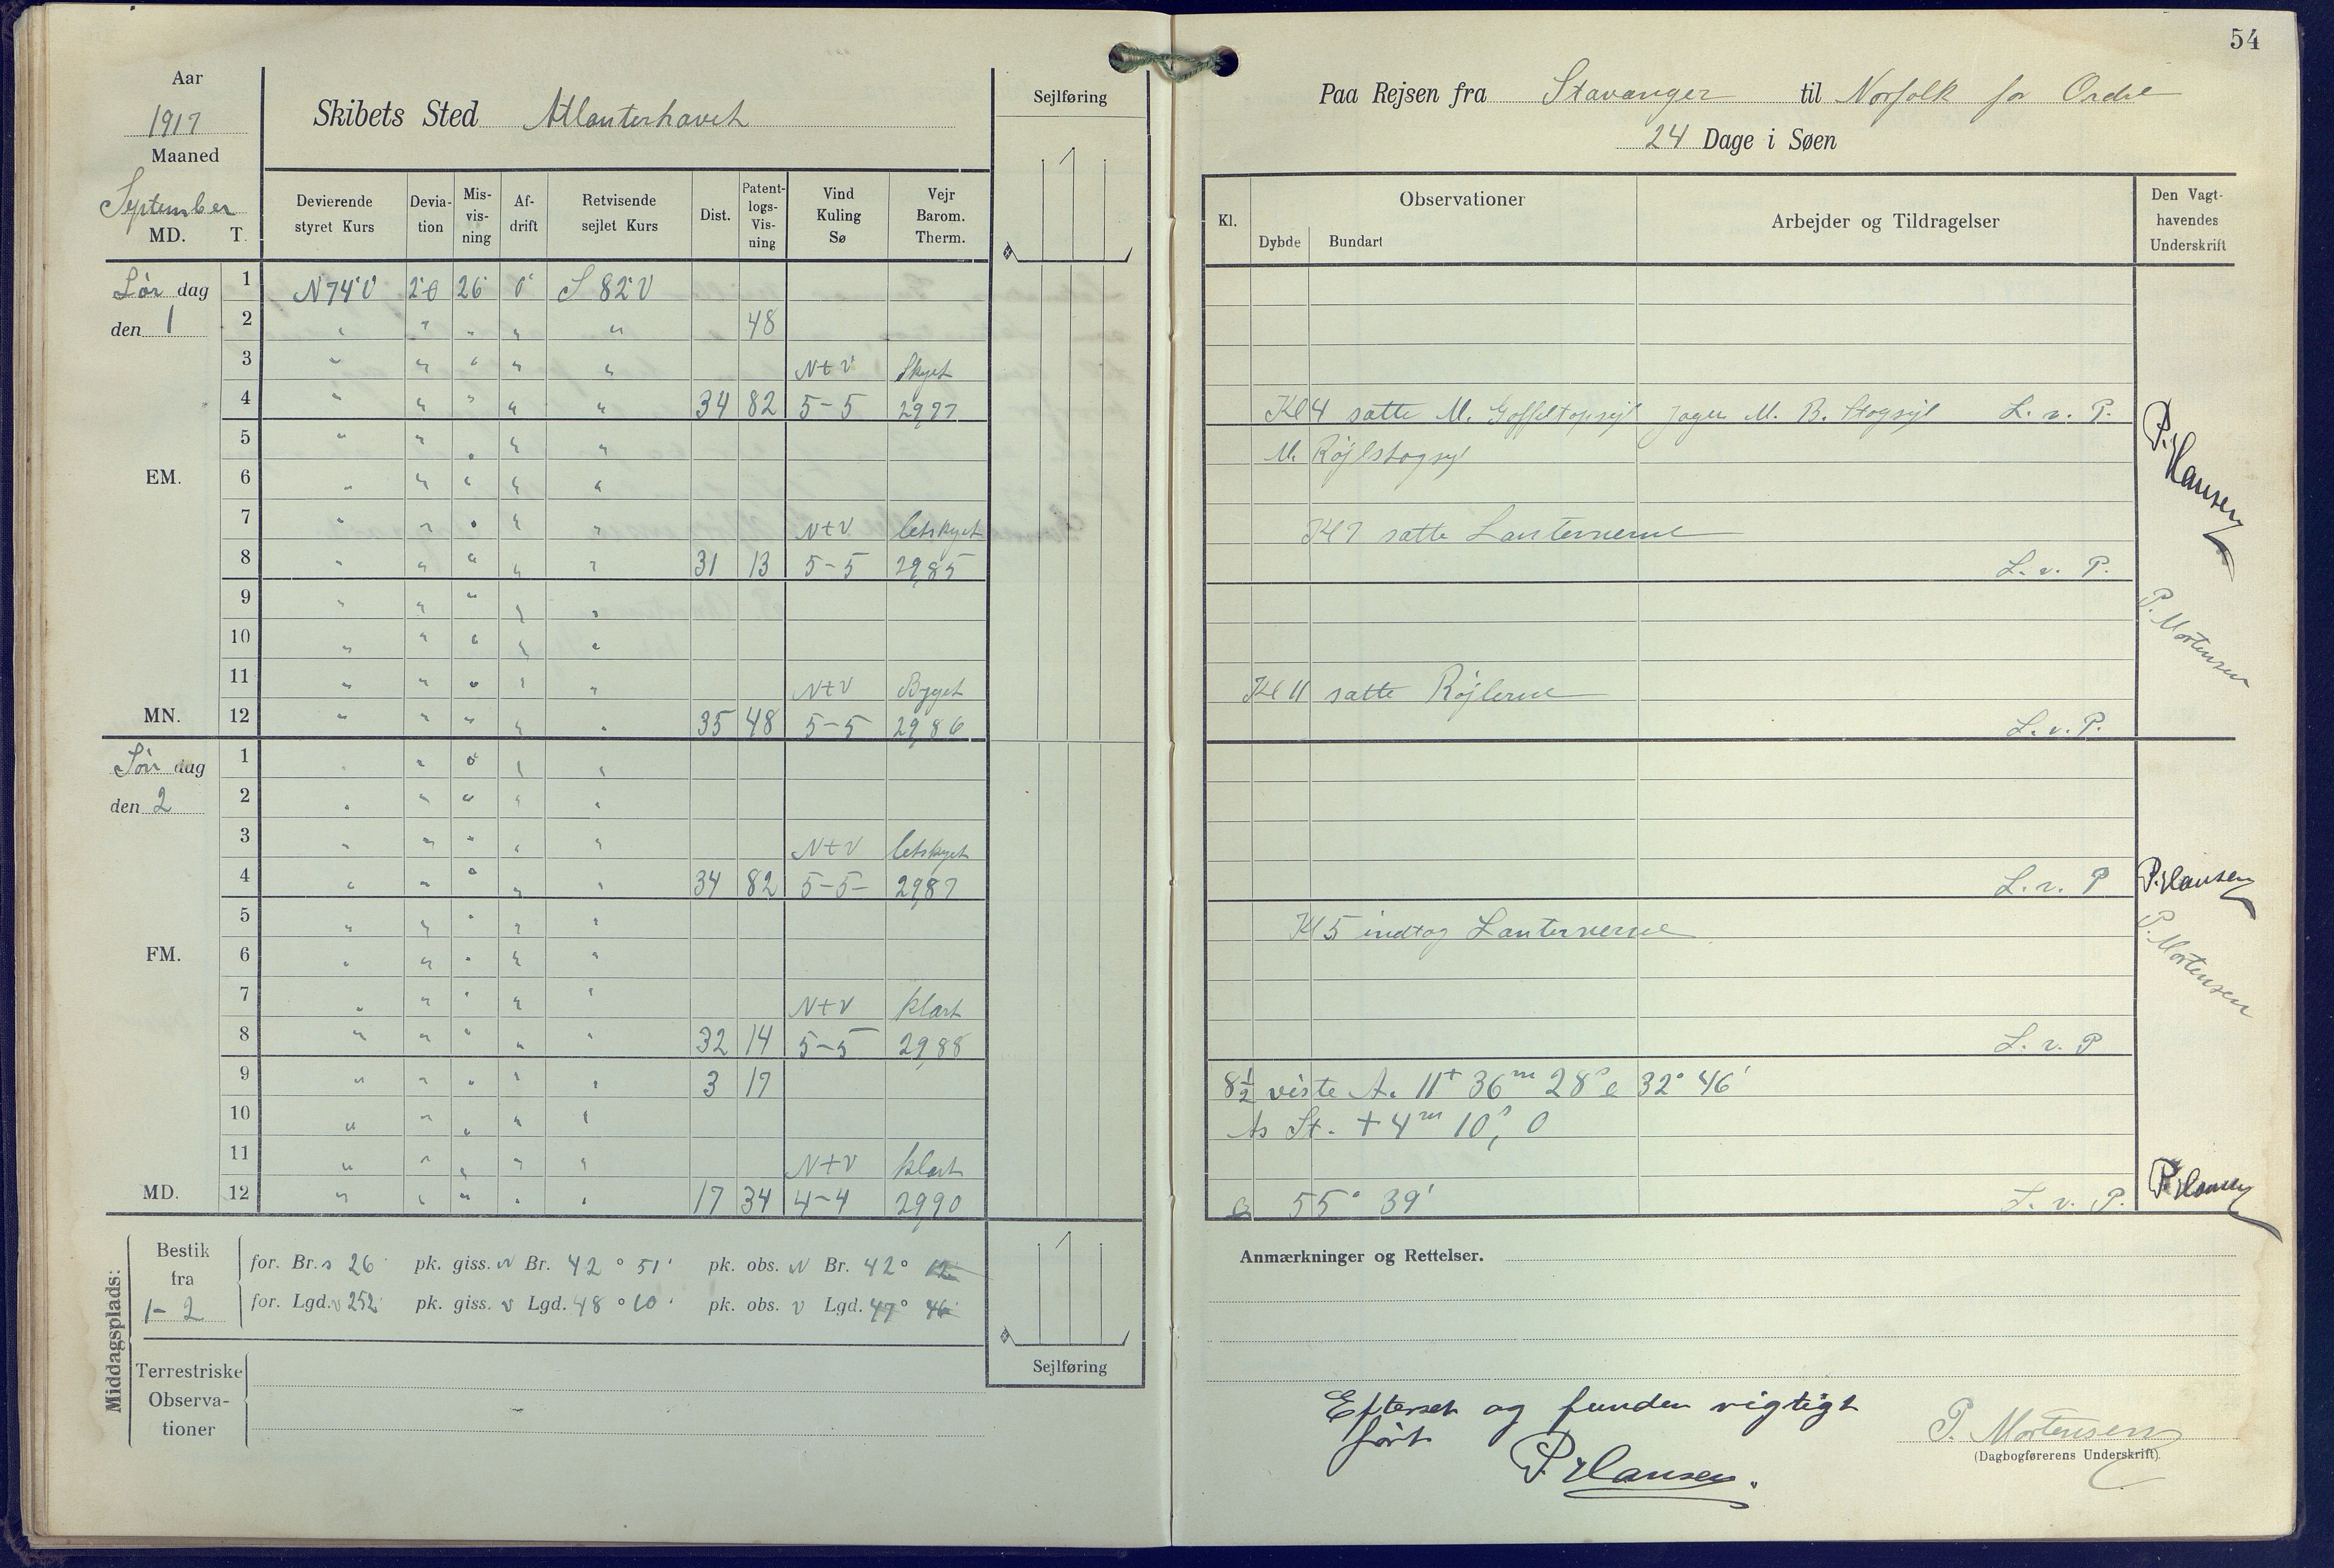 54
Aar
1917
Maaned
September
MD. T.
Skibets Sted Atlanterhavet
Sejlføring
Devierende styret Kurs
Devia-tion
Mis-vis-ning
Af-drift
Retvisende sejlet Kurs
Dist.
Patent-logs-Vis-ning
Vind Kuling Sø
Vejr Barom. Therm.
Lør dag 1 N 74° V 2° Ø 26° 0° S 82° V
den 1 2 " " " " " 48
3 " " " " " N t V Skyet
4 " " " " " 34 82 5-5 29,77
5 " " " " "
EM. 6 " " " " "
7 " " " " " N t V letskyet
8 " " " " " 31 13 5-5 29,85
9 " " " " "
10 " " " " "
11 " " " " " N t V Byget
MN. 12 " " " " " 35 48 5-5 29,86
Søn dag 1 " " " " "
den 2 2 " " " " "
3 " " " " " N t V letskyet
4 " " " " " 34 82 5-5- 29,87
5 " " " " "
FM. 6 " " " " "
7 " " " " " N t V klart
8 " " " " " 32 14 5-5 29,88
9 " " " " " 3 17
10 " " " " "
11 " " " " " N t V klart
MD. 12 " " " " " 17 34 4-4 29,90
Middagsplads:
Bestik fra 1-2
for. Br. s 26' pk. giss. N Br. 42° 51' pk. obs. N Br. 42° 12'
for. Lgd. v 252' pk. giss. v Lgd. 48° 10' pk. obs. v Lgd. 47° 46'
Terrestriske Observa-tioner
Sejlføring
Paa Rejsen fra Stavanger til Norfolk for Ordre
24 Dage i Søen
Kl.
Observationer
Dybde Bundart
Arbejder og Tildragelser
Den Vagt-havendes Underskrift
Kl 4 satte M. Gaffeltopsejl Jager M. B. Stagsejl L. v. P.
M. Røjlstagsejl
P. Hansen
Kl 7 satte Lanternerne
L. v. P.
P. Mortensen
Kl 11 satte Røjlerne
L. v. P.
L. v. P P. Hansen
Kl 5 indtog Lanternerne
P. Mortensen
L. v. P
8½ viste A. 11t 36m 28s 32° 46'
As St. + 4m 10s, 0
55° 39' L. v. P. P. Hansen
Anmærkninger og Rettelser.
Efterset og funden rigtigt
ført
P. Hansen.
P. Mortensen
(Dagbogførerens Underskrift)